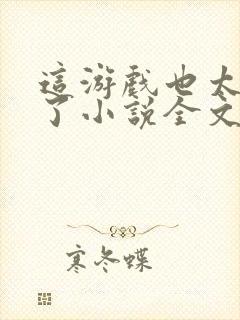 這游戲也太
了小說全文
寒冬蝶